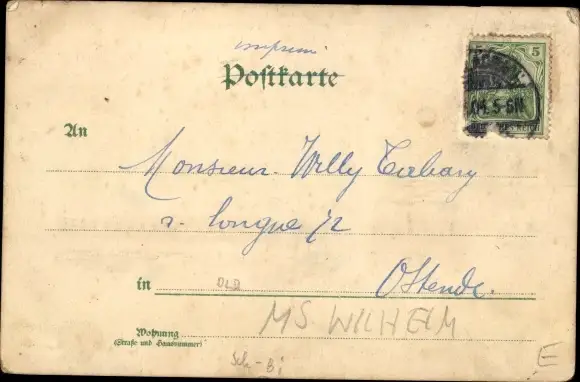 imprimé
Postkarte
5
5-6N
An
Monsieur Willy
r. longue 72
in
DLD
Ostende.
MS WILHELM
Wohnung
(Straße und Hausnummer)
Sch - Bi
E